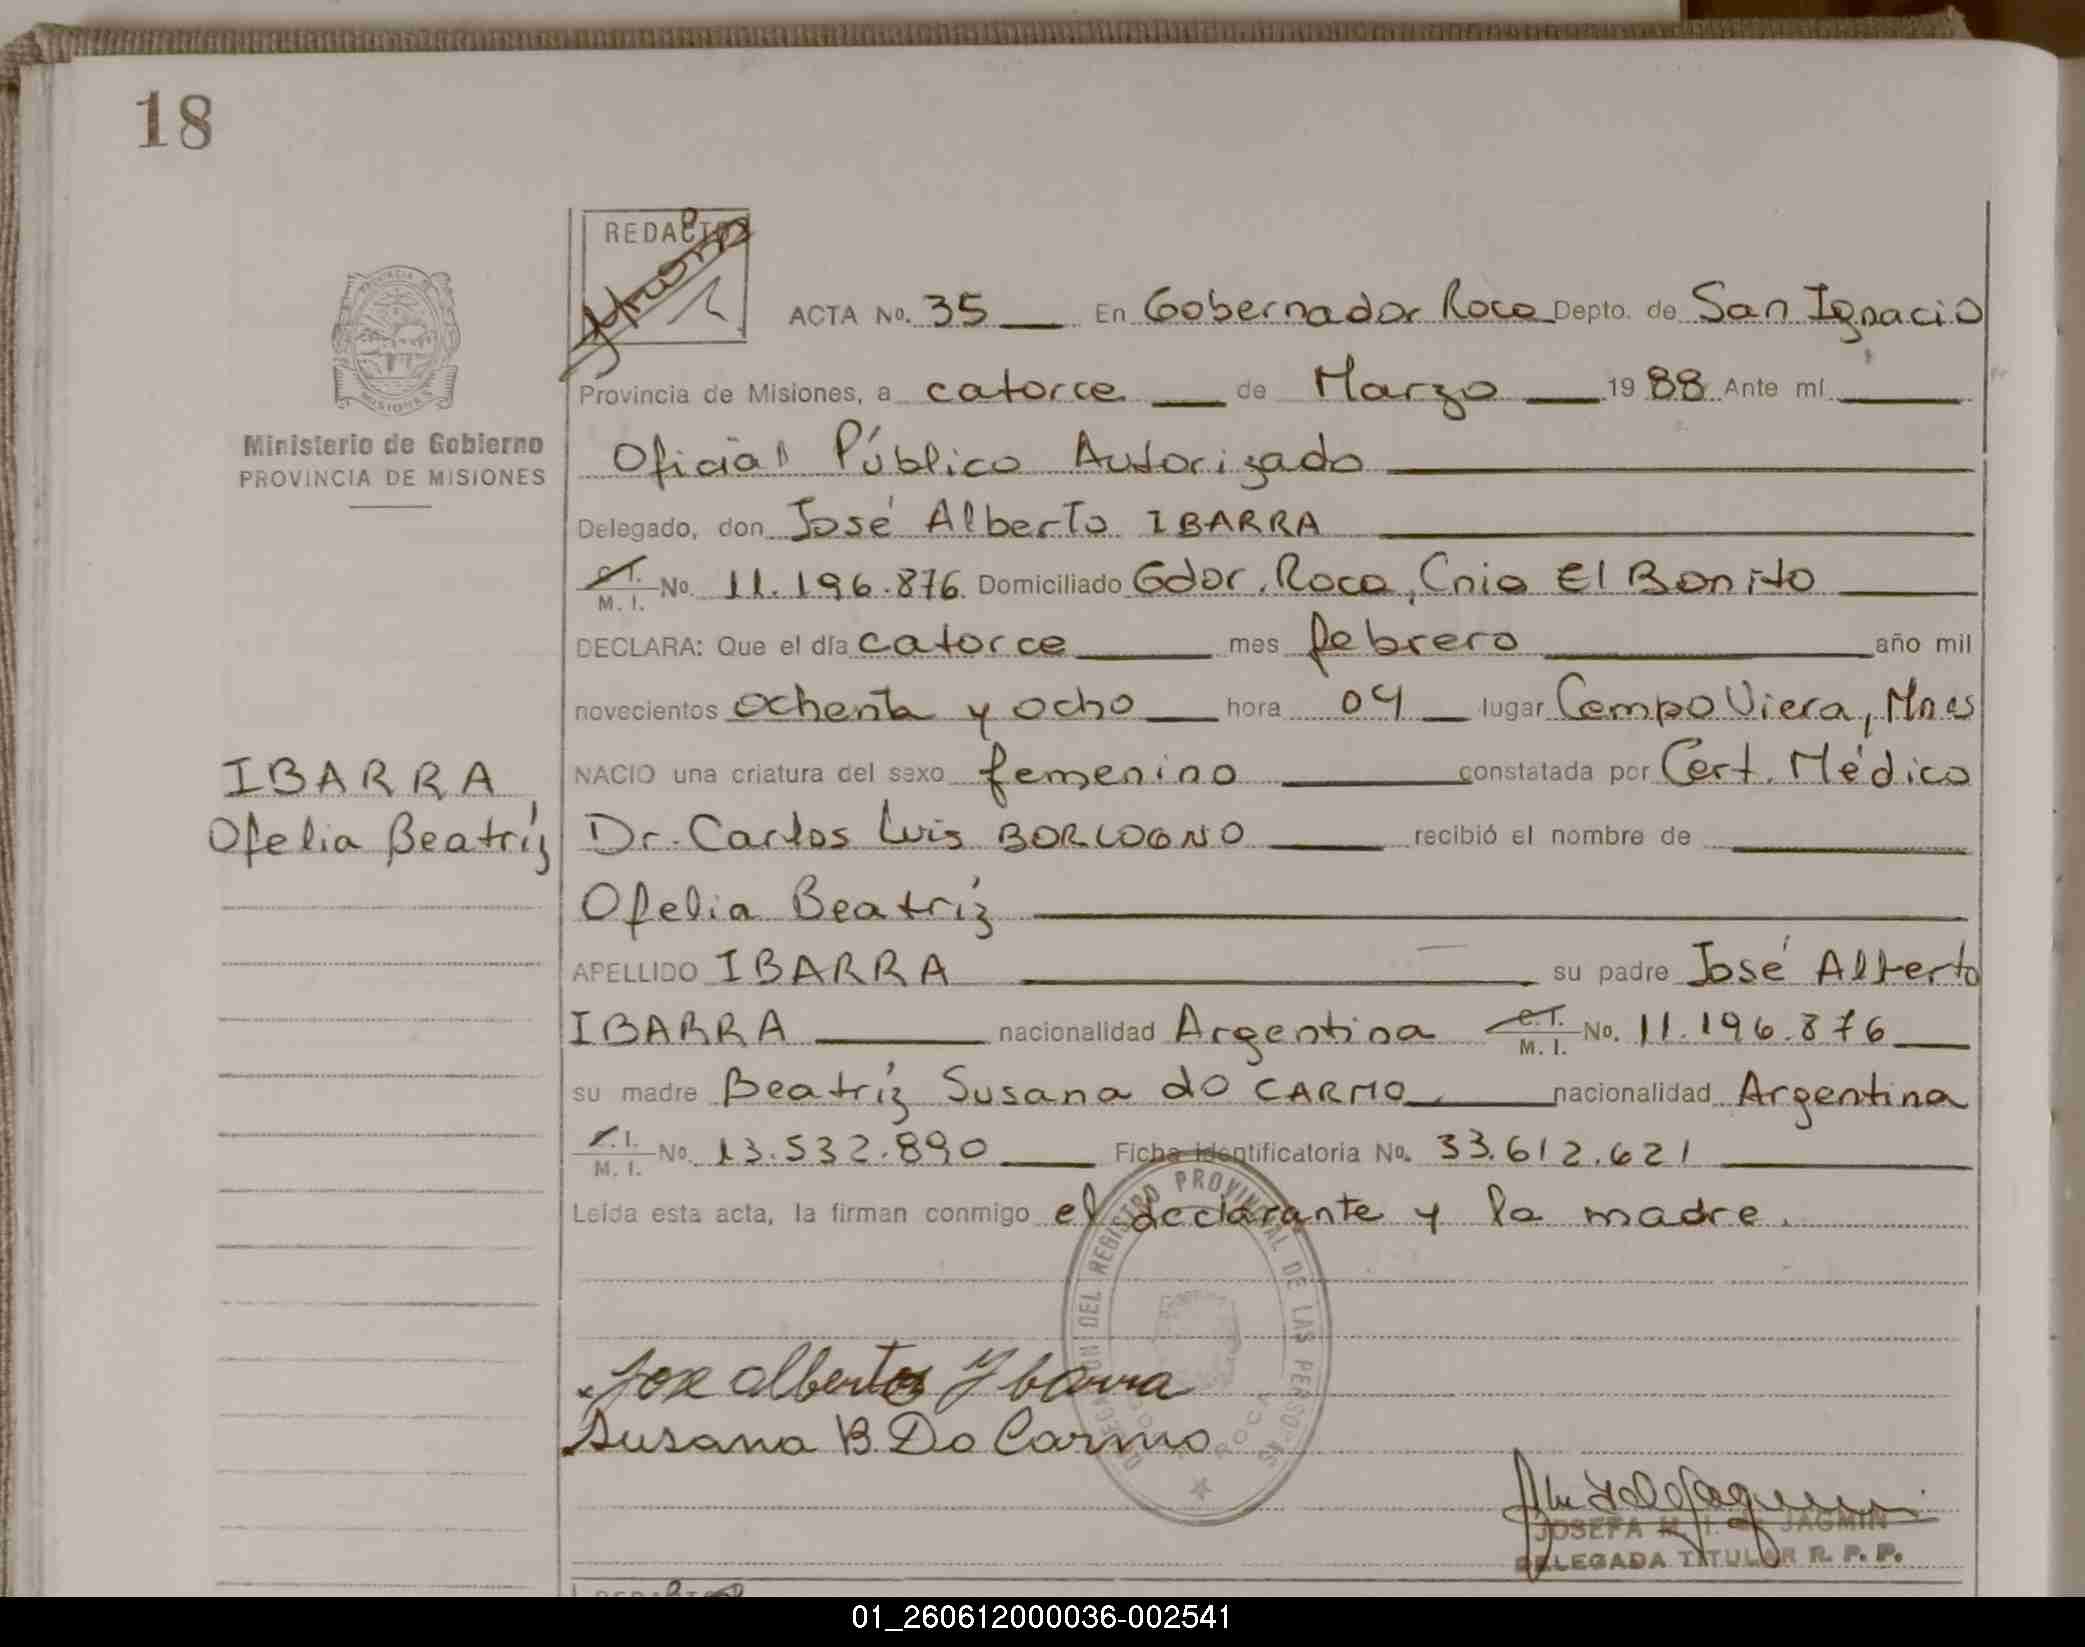 18
REDACTO
ACTA No. 35 En Gobernador Roca Depto. de San Ignacio
Provincia de Misiones, a catorce de Marzo 1988 Ante mí
Oficial Público Autorizado
Delegado, don José Alberto IBARRA
C.I. M. I. No. 11.196.876 Domiciliado Gdor. Roca, Cnia El Bonito
DECLARA: Que el día catorce mes febrero año mil
novecientos ochenta y ocho hora 04 lugar Campo Viera, Mnes
NACIO una criatura del sexo femenino constatada por Cert. Médico
Dr. Carlos Luis BORLOGNO recibió el nombre de
Ofelia Beatríz
APELLIDO IBARRA su padre José Alberto
IBARRA nacionalidad Argentina C.I. M. I. No. 11.196.876
su madre Beatríz Susana do CARMO nacionalidad Argentina
C.I. M. I. No. 13.532.890 Ficha identificatoria No. 33.612.621
Leída esta acta, la firman conmigo el declarante y la madre.
Ministerio de Gobierno
PROVINCIA DE MISIONES
IBARRA
Ofelia Beatríz
Jose Alberto Ybarra
Susana B. Do Carmo
DIRECCION DEL REGISTRO PROVINCIAL DE LAS PERSONAS
ROCA
JOSEFA JAGMIN
DELEGADA TITULAR R. P. P.
01_260612000036-002541